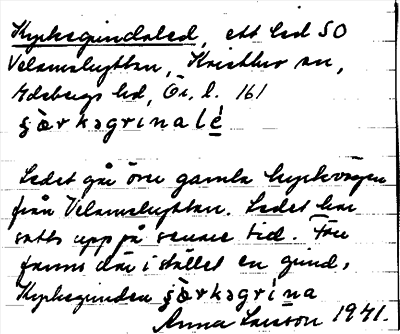 Kyrkegrindaled, ett led SO
Velamshyttan, Kristher sn,
Edsbergs hd, Ör. l. 161
şòrkəgrinalé
Ledet går över gamla kyrkvägen
från Velamshyttan. Ledet har
satts upp på senare tid. Förr
fanns där i stället en grind,
Kyrkegrinden şòrkəgrina
Anna Larsson 1941.